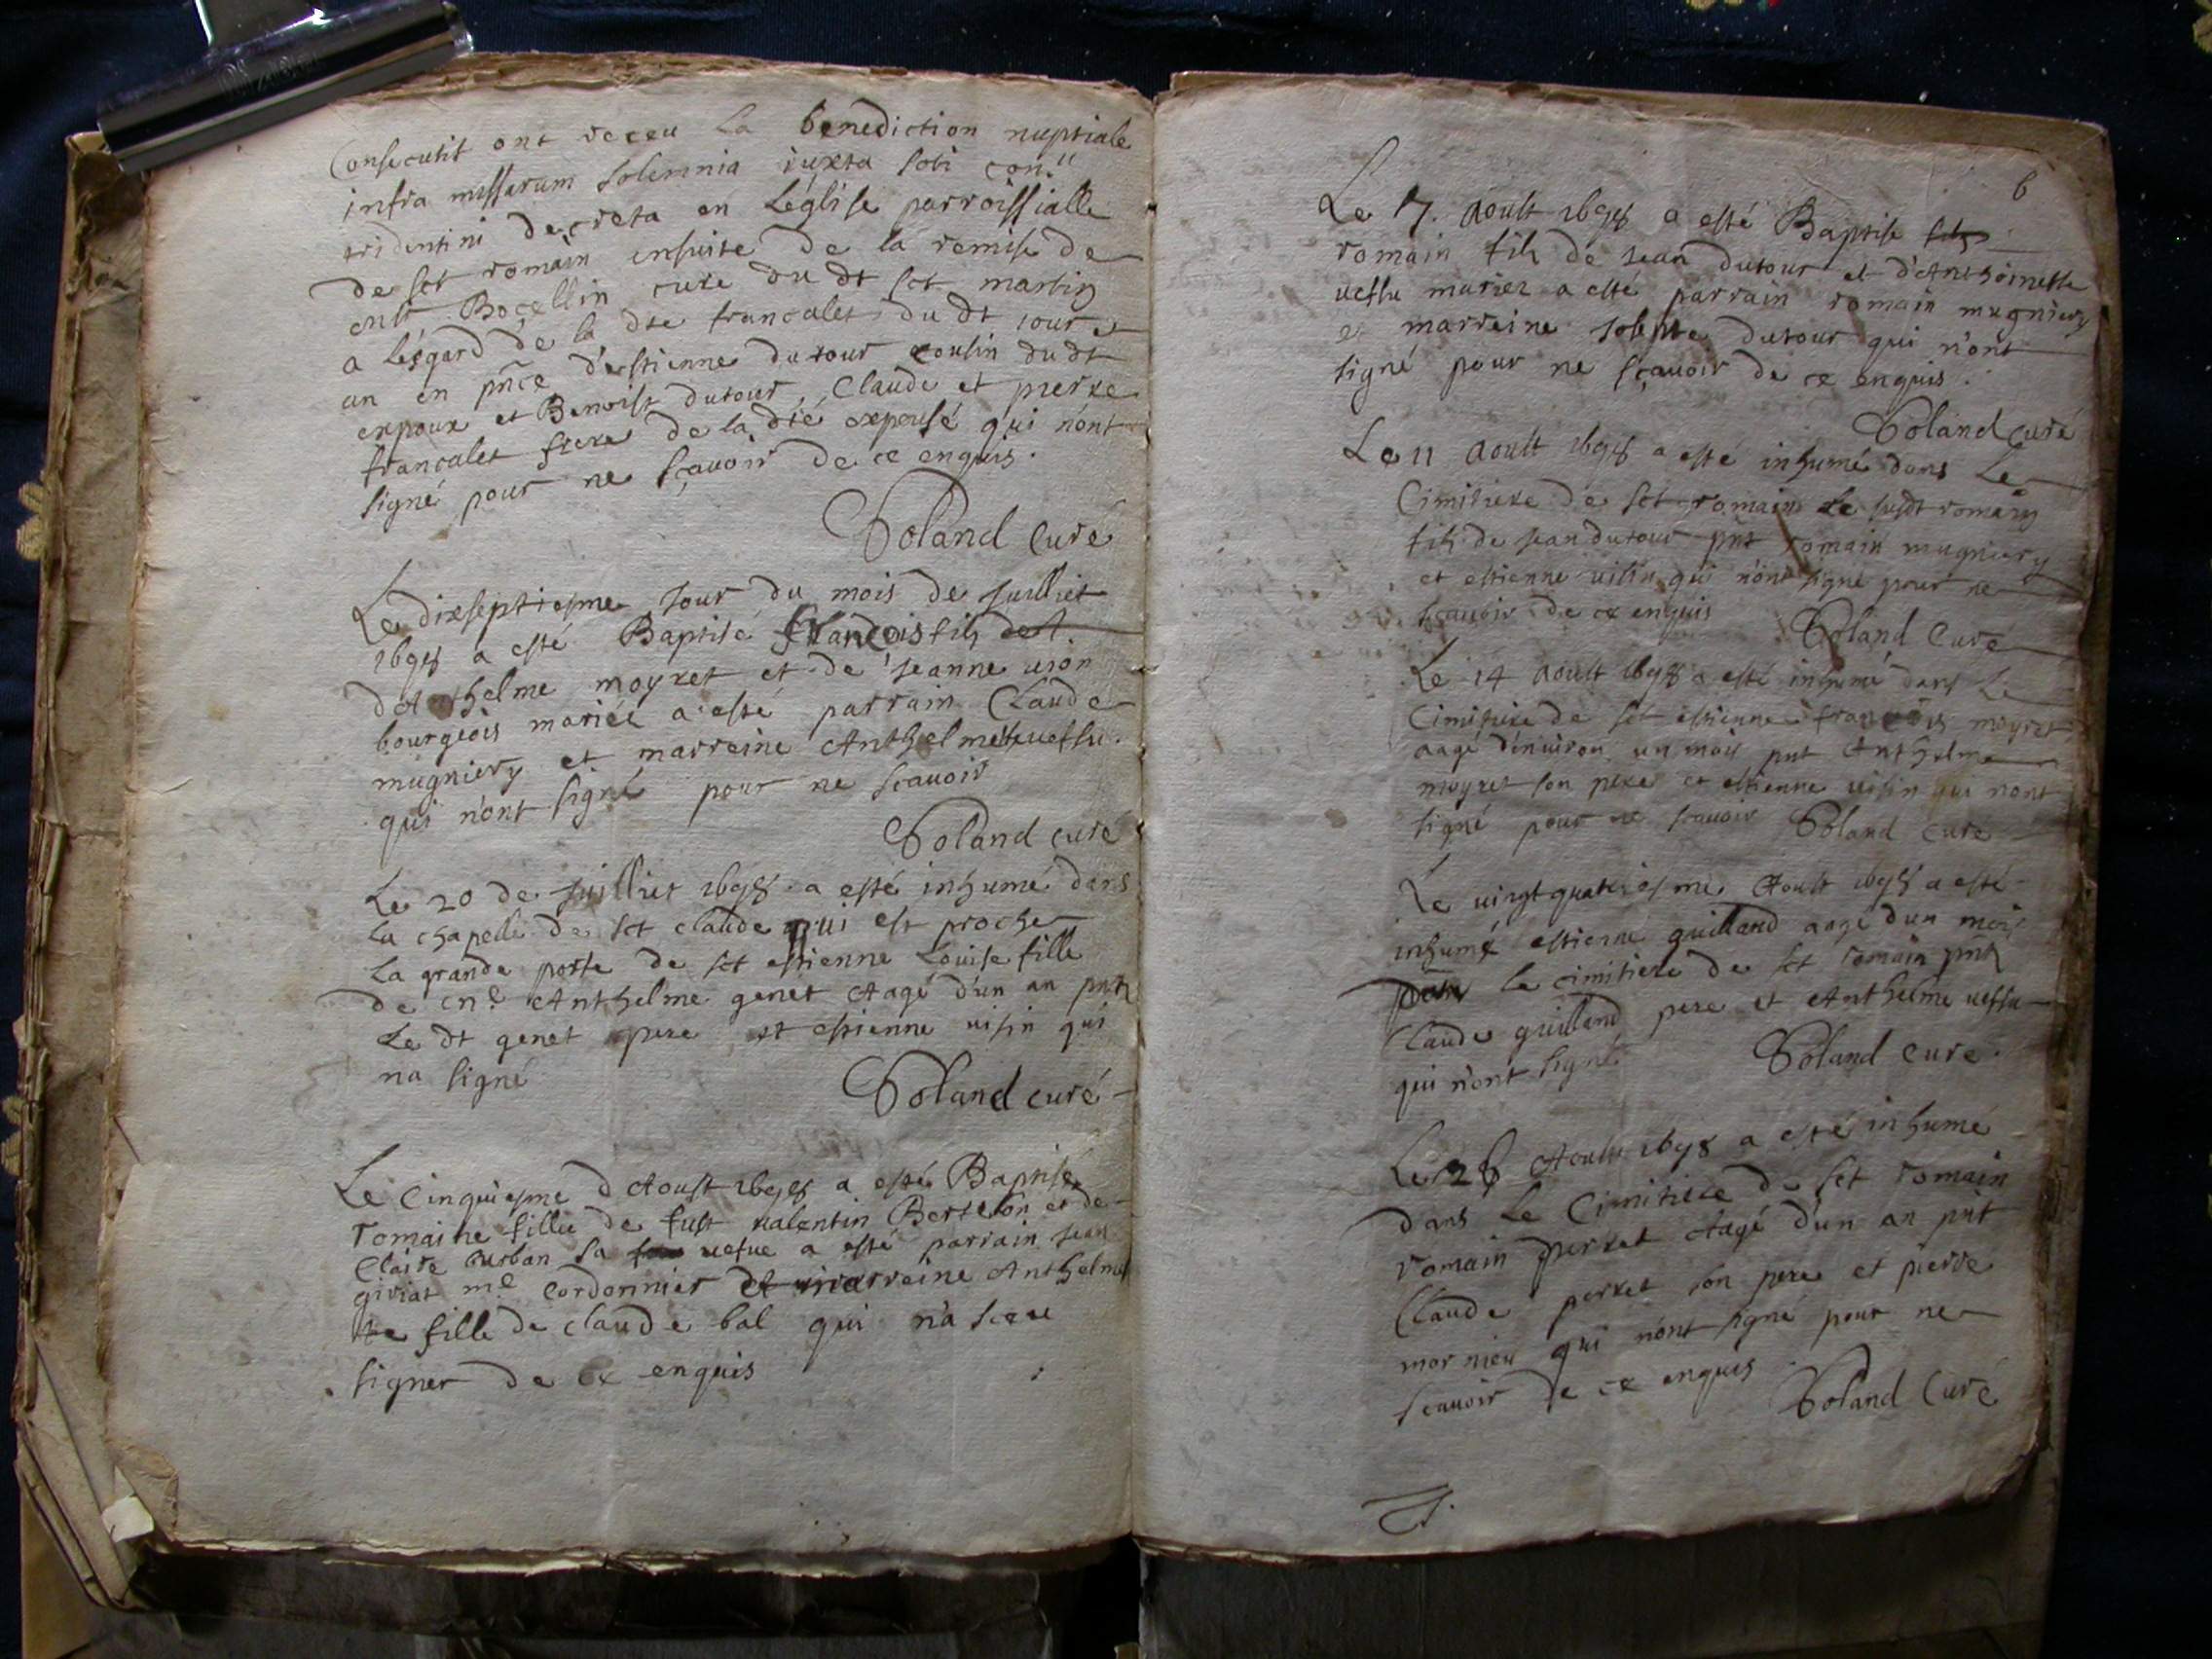 Consecutif ont receu la benediction nuptiale
infra missarum solemnia iuxta con.
tridentini decreta en Léglise parroissialle
de sct romain ensuite de la remise de
Bocellin cure du dt sct martin
a lésgard de la dte francalet du dt iour
an en pnce d'estienne dutour cousin du dt
expoux et Benoist dutour, Claude et pierre
francalet frere de la dte expousé qui nont
signé pour ne sçauoir de ce enquis.
Poland Curé
Le dixseptiesme Jour du mois de Juilliet
1698 a esté Baptisé francois fils
d'Anthelme moyret et de Jeanne
bourgeois mariéz a esté parrain Claude
mugniery et marreine Anthelmete uessu.
qui nont signé pour ne scauoir
Poland curé
Le 20 de Juilliet 1698 a esté inhumé dans
la chapelle de sct claude qui est proche
la grande porte de sct estienne Louise fille
de Anthelme genet Aagé d'un an pnt
Le dt genet pere et estienne uisin qui
na signé
Poland curé
Le Cinquiesme d'Aoust 1698 a esté Baptisé
romaine fillie de fust ualentin Berthton et de
Claire urban sa uefue a esté parrain Jean
giriat me. Cordonnier et marreine Anthelme
te fille de claude bal qui n'a sceu
signer de ce enquis
6
Le 7. Aoust 1698 a esté Baptise fils
romain fils de Jean dutour et d'Anthoinette
uessu mariez a esté parrain romain mugniery
et marreine dutour qui n'ont
signé pour ne sçauoir de ce enquis.
Poland Curé
Le 11 Aoust 1698 a esté inhumé dans Le
Cimitiere de sct romain Le susdt romain
fils de Jean dutour pnt romain mugniery
et estienne uisin qui nont signé pour ne
scauoir de ce enquis
Poland Curé
Le 14 Aoust 1698 a esté inhumé dans Le
Cimitiere de sct estienne francois moyret
aagé d'enuiron un mois pnt Anthelme
moyret son pere et estienne uisin qui nont
signé pour ne scauoir Poland Curé
Le uingtquatriesme Aoust 1698 a esté
inhumé estienne guilland aagé dun mois
dans le cimitiere de sct romain pnt
Claude guilland pere et Anthelme uessu
qui n'ont signé. Poland Curé.
Le 26 Aoust 1698 a esté inhumé
dans Le Cimitiere de sct romain
romain perret Aagé d'un an pnt
Claude perret son pere et pierre
mornieu qui n'ont signé pour ne
scauoir de ce enquis
Poland Curé